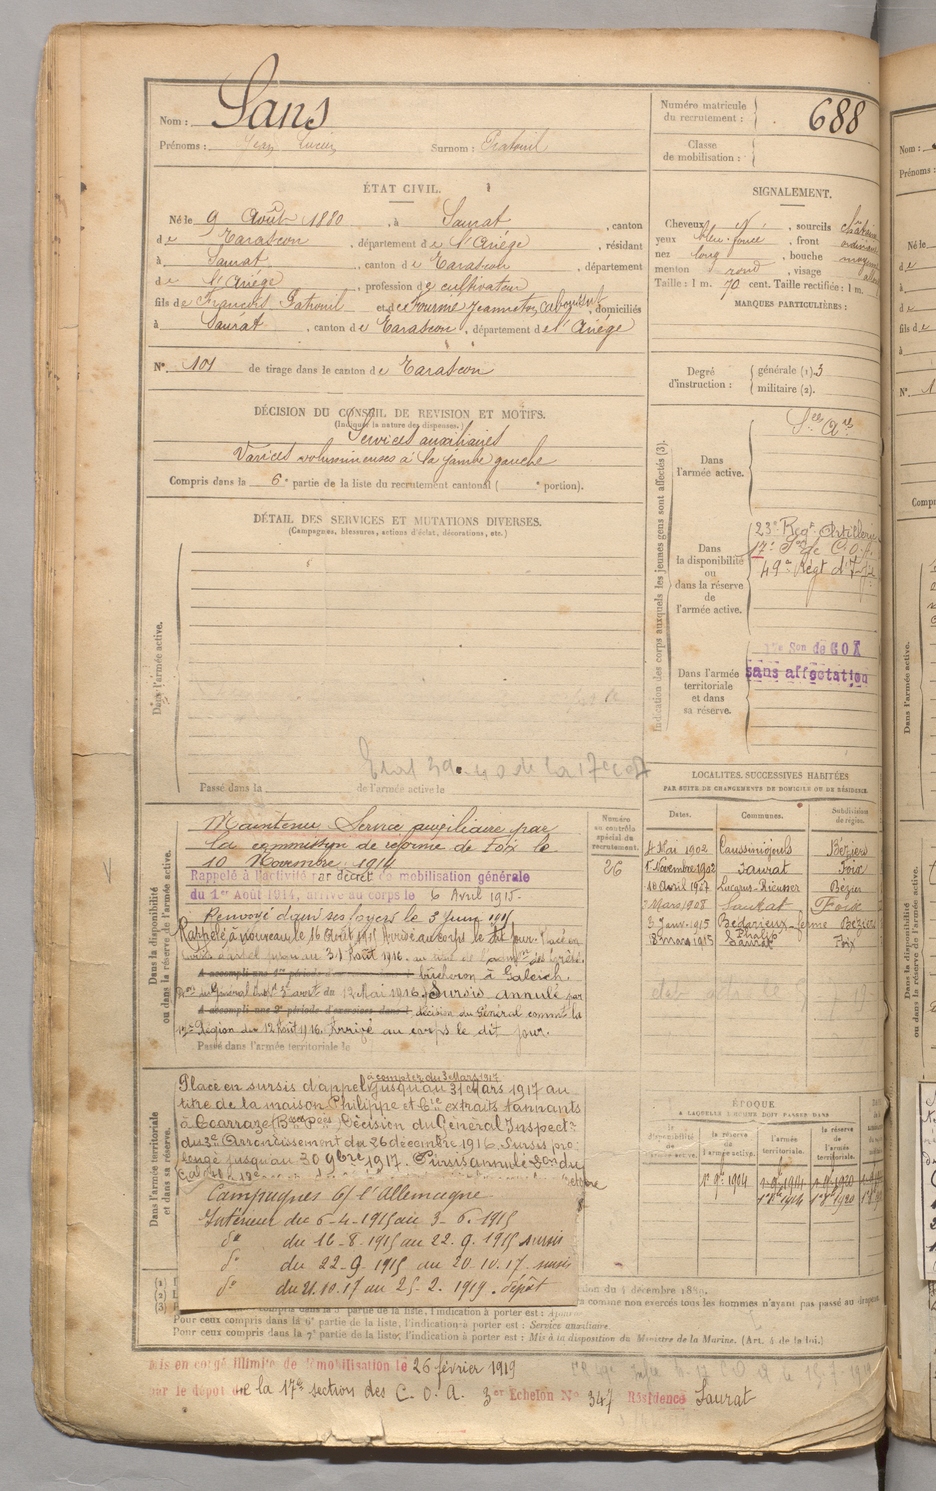 Nom : Sans
Prénoms : Jean Lucien Surnom : Gratouil
Numéro matricule du recrutement : 688
Classe de mobilisation :
ÉTAT CIVIL.
Né le 9 Août 1880, à Saurat, canton
de Tarascon, département de l'Ariège, résidant
à Saurat, canton de Tarascon, département
de l'Ariège, profession de cultivateur
fils de François Gratouil et de Fournié Jeanneton, domiciliés
à Saurat, canton de Tarascon, département de l'Ariège
N° 101 de tirage dans le canton de Tarascon
SIGNALEMENT.
Cheveux, sourcils châtains
yeux bleu foncé, front ordinaire
nez long, bouche moyenne
menton rond, visage
Taille : 1 m. 70 cent. Taille rectifiée : 1 m.
MARQUES PARTICULIÈRES :
Degré d'instruction : générale (1). 3
militaire (2).
DÉCISION DU CONSEIL DE REVISION ET MOTIFS.
(Indiquer la nature des dispenses.)
Services auxiliaires
Varices volumineuses à la jambe gauche
Compris dans la 6e partie de la liste du recrutement cantonal ( e portion).
DÉTAIL DES SERVICES ET MUTATIONS DIVERSES.
(Campagnes, blessures, actions d'éclat, décorations, etc.)
Dans l'armée active.
Passé dans la de l'armée active le
Indication des corps auxquels les jeunes gens sont affectés (3).
Dans l'armée active.
Dans la disponibilité ou dans la réserve de l'armée active.
23e Regt Artillerie
17e Son de C.O.A.
49e Regt d'Inf
Dans l'armée territoriale et dans sa réserve.
17e Son de COA
sans affectation
Dans la disponibilité ou dans la réserve de l'armée active.
Maintenu Service auxiliaire par
la commission de réforme de Foix le
10 Novembre 1914
Rappelé à l'activité par décret de mobilisation générale
du 1er Août 1914, arrivé au corps le 6 Avril 1915.
Renvoyé dans ses foyers le 3 Juin 1915
Rappelé à nouveau le 16 Août 1915 Arrivé au corps le dit jour. Placé en
A accompli une 1re période bûcheron à Galeich
du 12 Mai 1916. Sursis annulé par
A accompli une 2e période d'exercices dans l décision du Général commt la
17e Région du 12 Août 1916. Arrivé au corps le dit jour.
Passé dans l'armée territoriale le
Numéro au contrôle spécial du recrutement.
26
LOCALITÉS SUCCESSIVES HABITÉES
PAR SUITE DE CHANGEMENTS DE DOMICILE OU DE RÉSIDENCE.
Dates. Communes. Subdivision de région.
4 Mai 1902 Caussiniojouls Béziers
1er Novembre 1902 Saurat Foix
10 Avril 1907 Béziers
Mars 1908 Saurat Foix
3 Janv. 1915 Bédarieux ferme Phalip Béziers
8 mars 1915 Saurat Foix
Dans l'armée territoriale et dans sa réserve.
à compter du 3 Mars 1917
Placé en sursis d'appel jusqu'au 31 Mars 1917 au
titre de la maison Philippe et Cie extraits tannants
à Coarraze (Bses Pées) Décision du Général Inspectr
du 3e Arrondissement du 26 décembre 1916. Sursis pro
longé jusqu'au 30 9bre 1917. Sursis annulé Don du
Campagnes C/ l'Allemagne
Intérieur du 6-4-1915 au 3-6-1915
do du 16-8-1915 au 22-9-1915 sursis
do du 22-9-1915 au 20-10-17. sursis
do du 21.10.17 au 25-2-1919. dépôt
ÉPOQUE
A LAQUELLE L'HOMME DOIT PASSER DANS
la disponibilité de l'armée active. la réserve de l'armée active. l'armée territoriale. la réserve de l'armée territoriale.
1er 9e 1904
Pour ceux compris dans la 6e partie de la liste, l'indication à porter est : Service auxiliaire.
Pour ceux compris dans la 7e partie de la liste, l'indication à porter est : Mis à la disposition du Ministre de la Marine. (Art. 4 de la loi.)
Mis en congé illimité de démobilisation le 26 février 1919
par le dépôt de la 17e section des C.O.A. 3er Echelon N° 347 Résidence Saurat